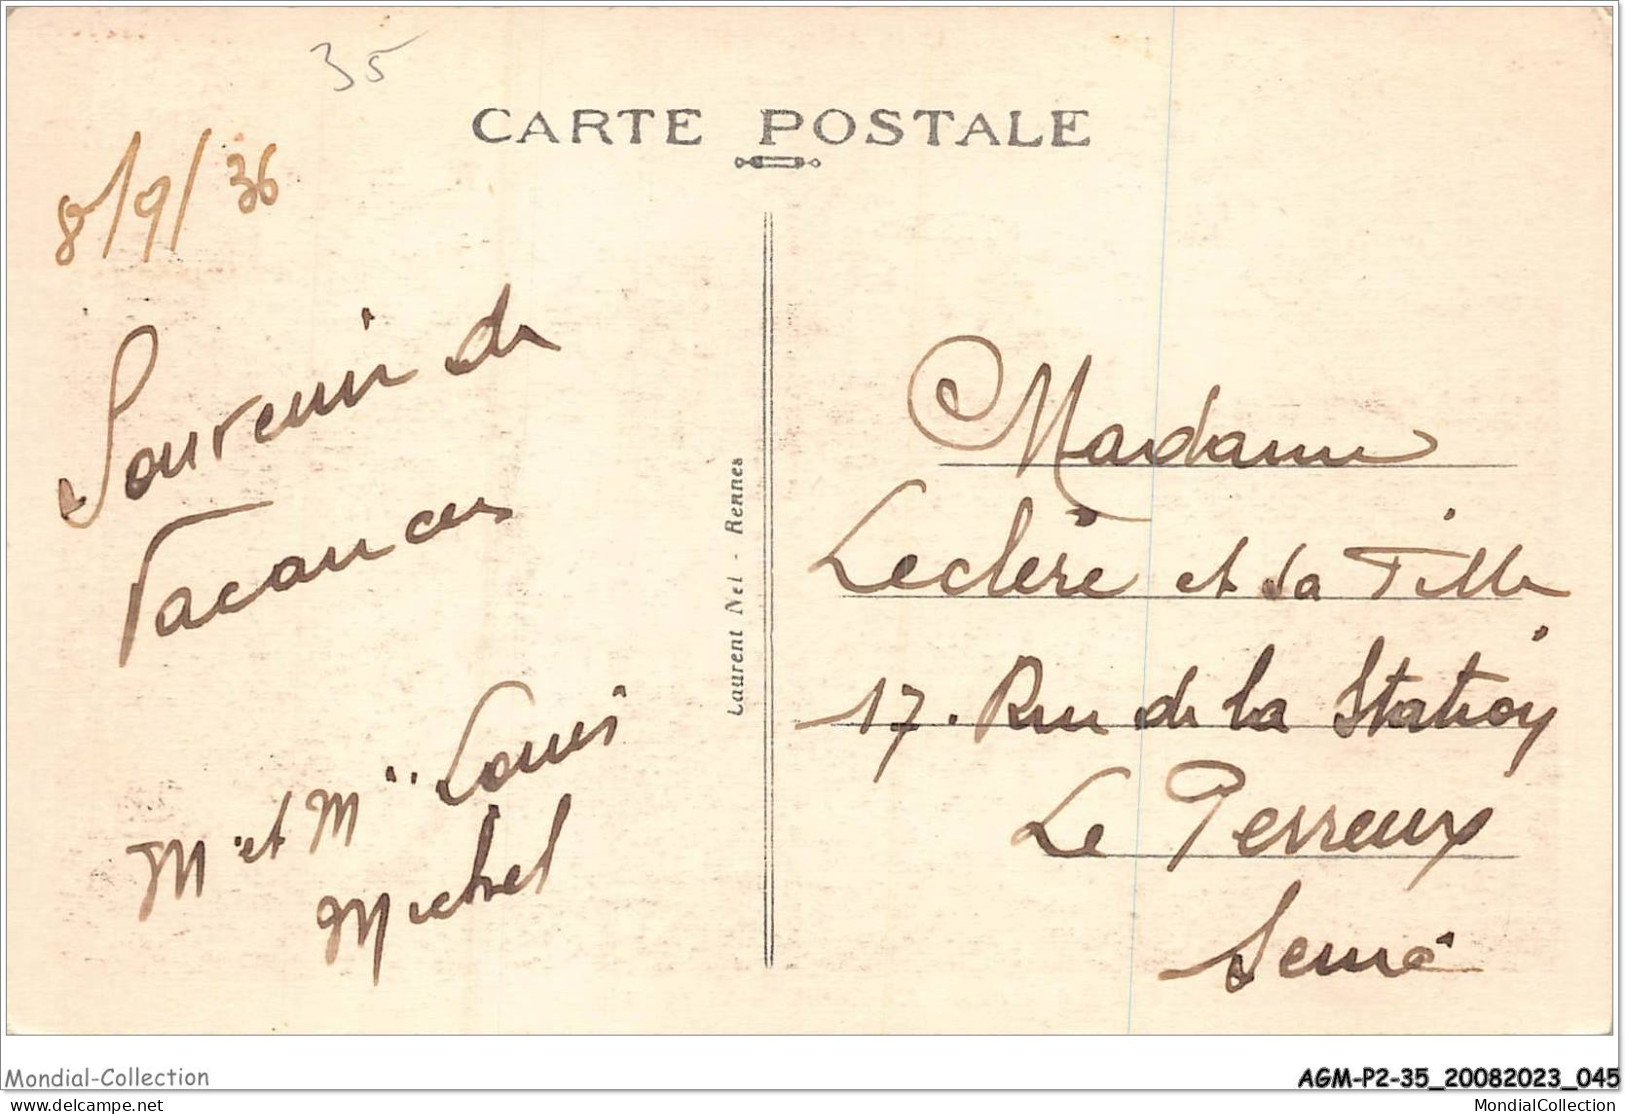 35
CARTE POSTALE
8/9/36
Souvenir de
Vacances
M et Me Louis
Michel
Laurent Nel - Rennes
Madame
Leclère et sa Fille
17. Rue de la Station
Le Perreux
Seine
Mondial-Collection
AGM-P2-35_20082023_045
www.delcampe.net
MondialCollection